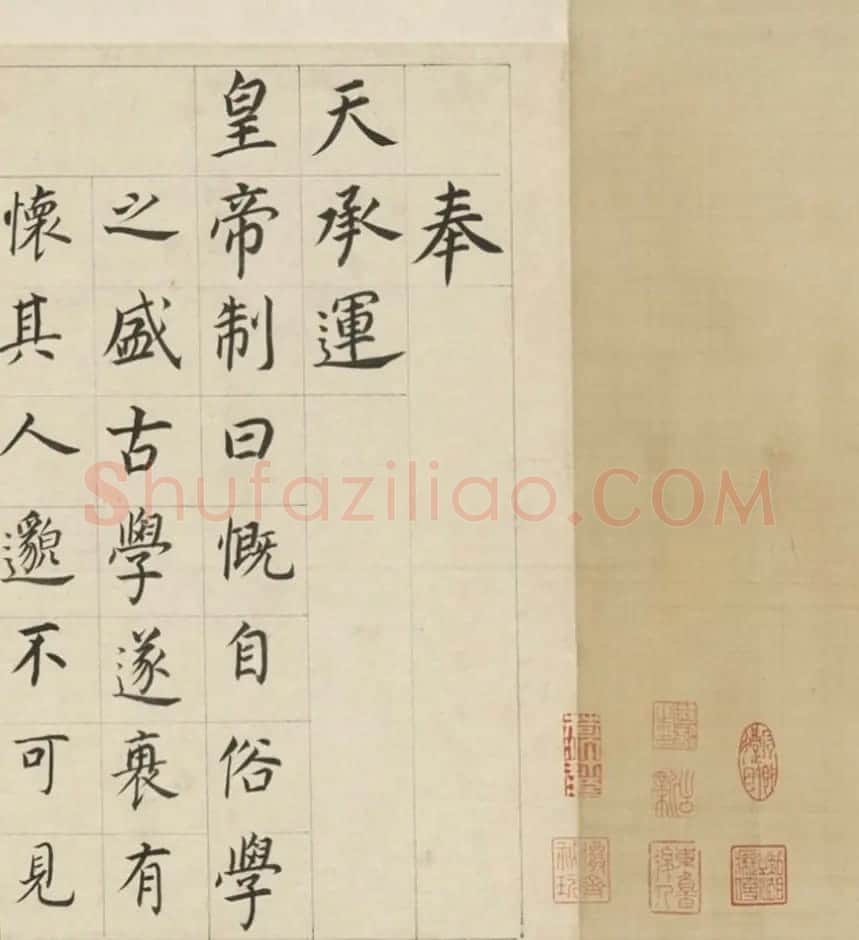 奉
天承運
皇帝制曰慨自俗學
之盛古學遂衰有
懷其人邈不可見
Shufaziliao.COM